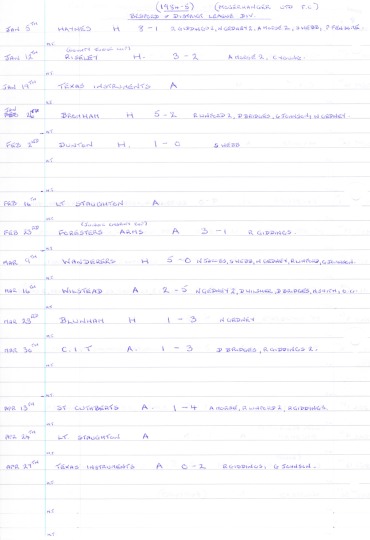 (1984-5) (MOGGERHANGER UTD F.C)
BEDFORD & DISTRICT LEAGUE DIV.
JAN 5TH HAYNES H 8-1 R GIDDINGS 2, N GEDNEY 2, A MOGER 2, S WEBB
(COUNTY JUNIOR CUP)
JAN 12TH RISELEY H. 3-2 A MOGER 2,
JAN 19TH TEXAS INSTRUMENTS A
JAN 26TH BROMHAM H 5-2 R WHIFORD 2, D BRIDGES, G JOHNSON, N GEDNEY.
FEB 2ND DUNTON H. 1-0 S WEBB
FEB 16TH LT STAUGHTON A.
FEB 23RD FORESTERS ARMS A 3-1 R GIDDINGS.
MAR 9TH WANDERERS H 5-0 S WEBB, N GEDNEY, G JOHNSON.
MAR 16TH WILSTEAD A 2-5 N GEDNEY 2, D BRIDGES, O.G.
MAR 23RD BLUNHAM H 1-3 N GEDNEY
MAR 30TH C.I.T A. 1-3 D BRIDGES, R GIDDINGS 2.
APR 13TH ST CUTHBERTS A. 1-4 A MOGER, R GIDDINGS.
APR 24TH LT STAUGHTON A
APR 27TH TEXAS INSTRUMENTS A 0-2 R GIDDINGS, G JOHNSON.